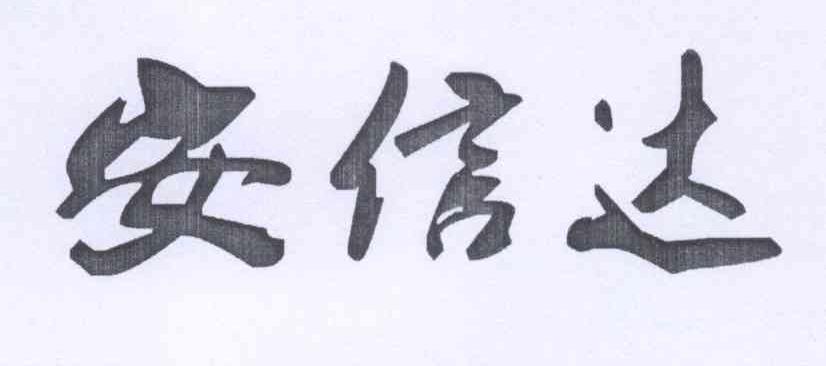 安信达